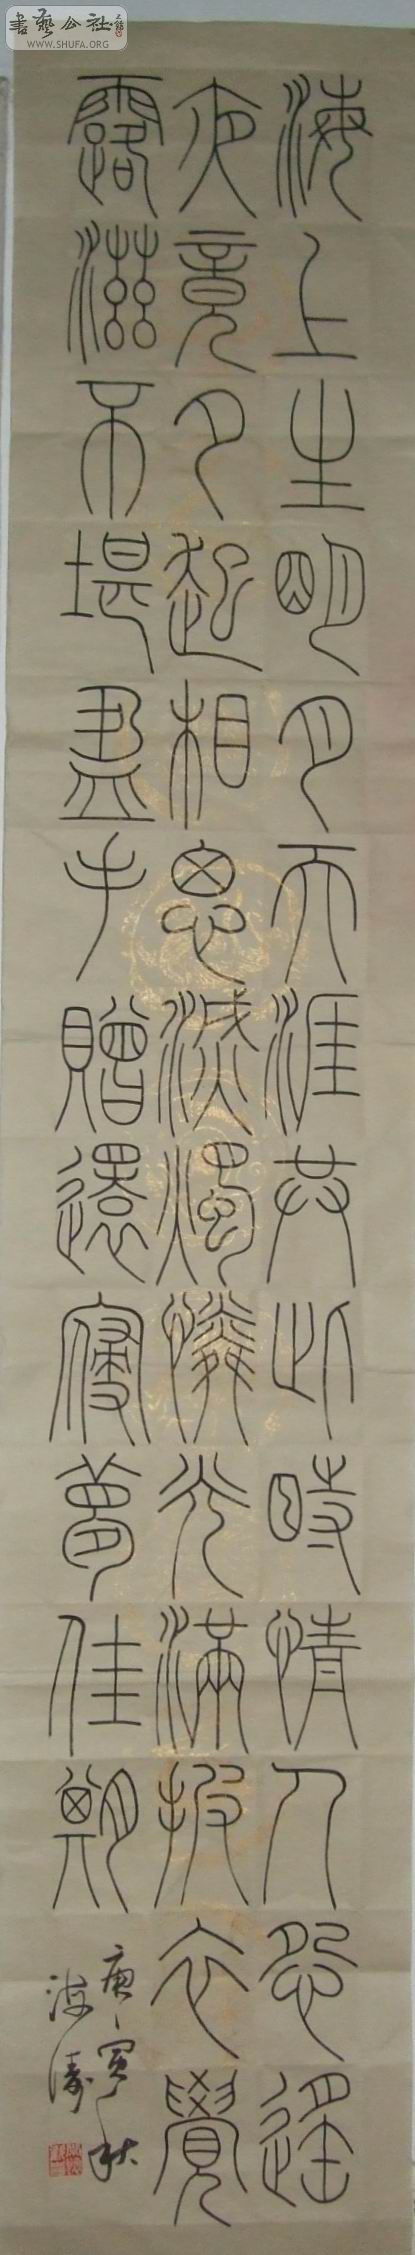 書藝公社
WWW.SHUFA.ORG
海上生明月天涯共此時情人怨遙
夜竟夕起相思滅燭憐光滿披衣覺
露滋不堪盈手贈還寢夢佳期
庚寅秋